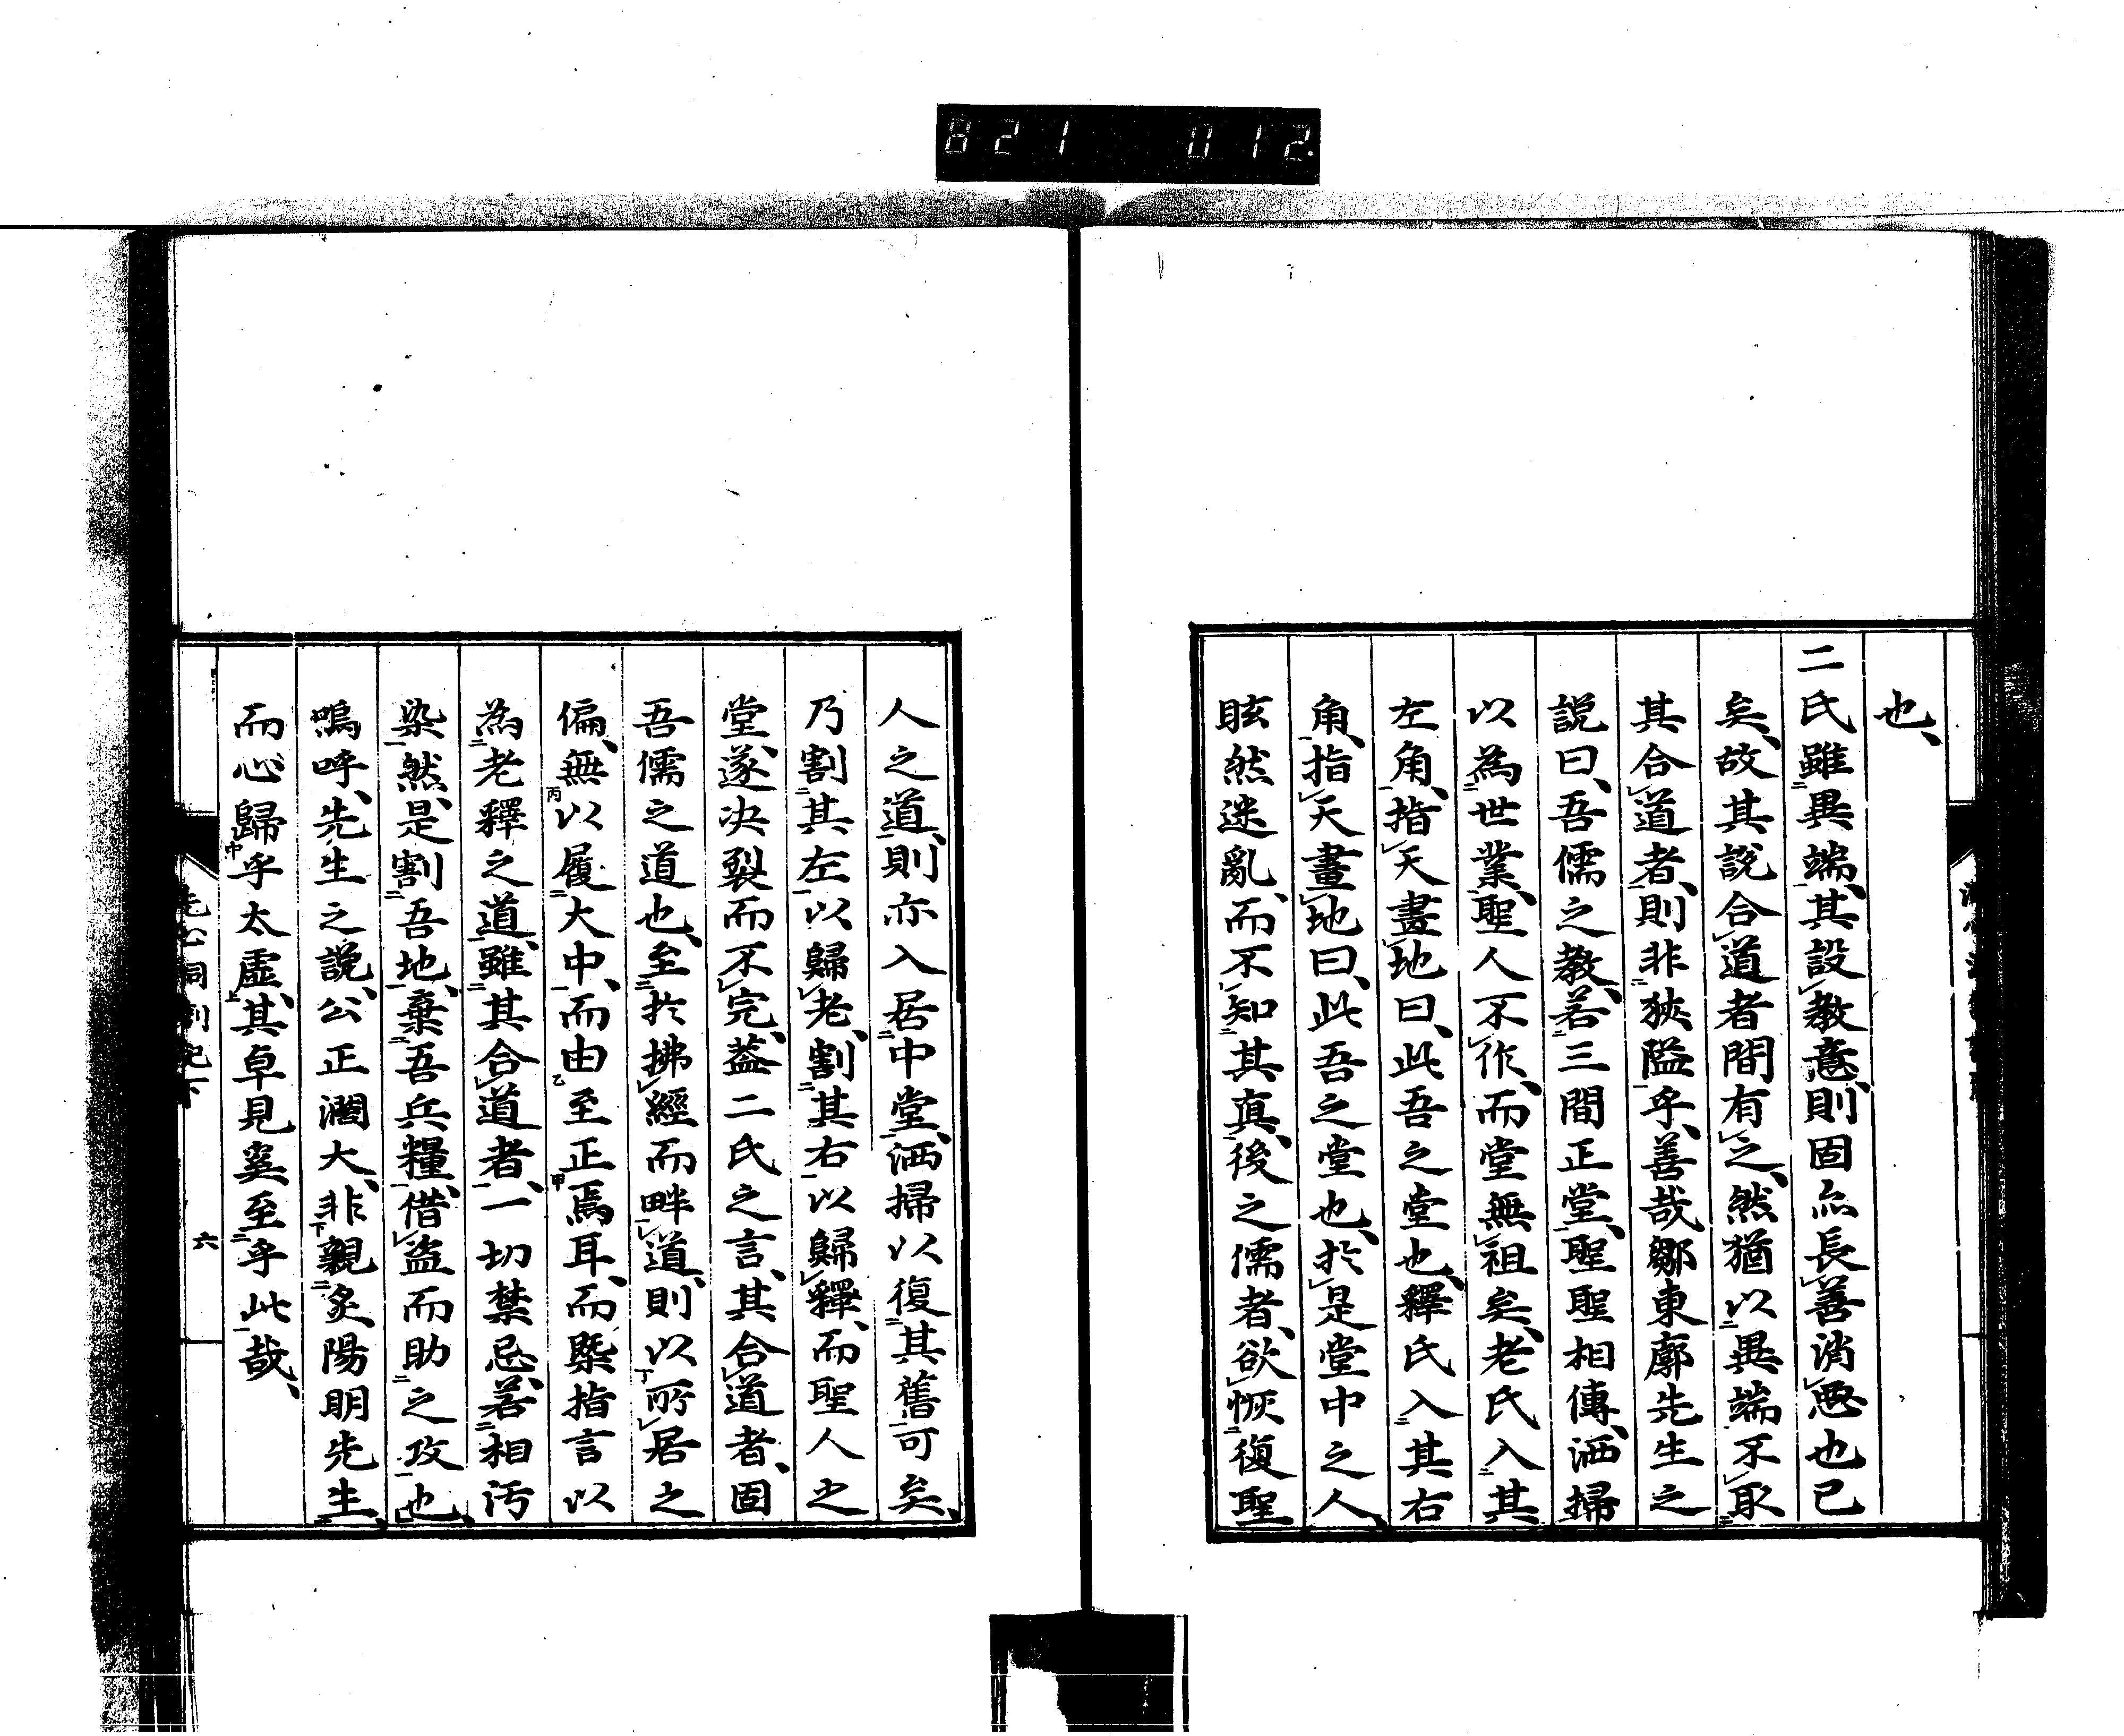 821 012
也、
二氏雖異端、其設教意、則固亦長善消惡也已
矣、故其說合道者間有之、然猶以異端不取
其合道者、則非狹隘乎、善哉鄒東廓先生之
說曰、吾儒之教、若三間正堂、聖聖相傳、洒掃
以為世業、聖人不作、而堂無祖矣、老氏入其
左角、指天畫地曰、此吾之堂也、釋氏入其右
角、指天畫地曰、此吾之堂也、於是堂中之人、
眩然迷亂、而不知其真、後之儒者、欲恢復聖
人之道、則亦入居中堂、洒掃以復其舊可矣、
乃割其左以歸老、割其右以歸釋、而聖人之
堂、遂決裂而不完、蓋二氏之言、其合道者、固
吾儒之道也、至於拂經而畔道、則以所居之
偏、無以履大中、而由至正焉耳、而槩指言以
為老釋之道、雖其合道者、一切禁忌、若相汚
染、然是割吾地、棄吾兵糧、借盜而助之攻也、
嗚呼、先生之說、公正濶大、非親炙陽明先生、
而心歸乎太虛、其卓見奚至乎此哉、
洗心洞劄記下 六